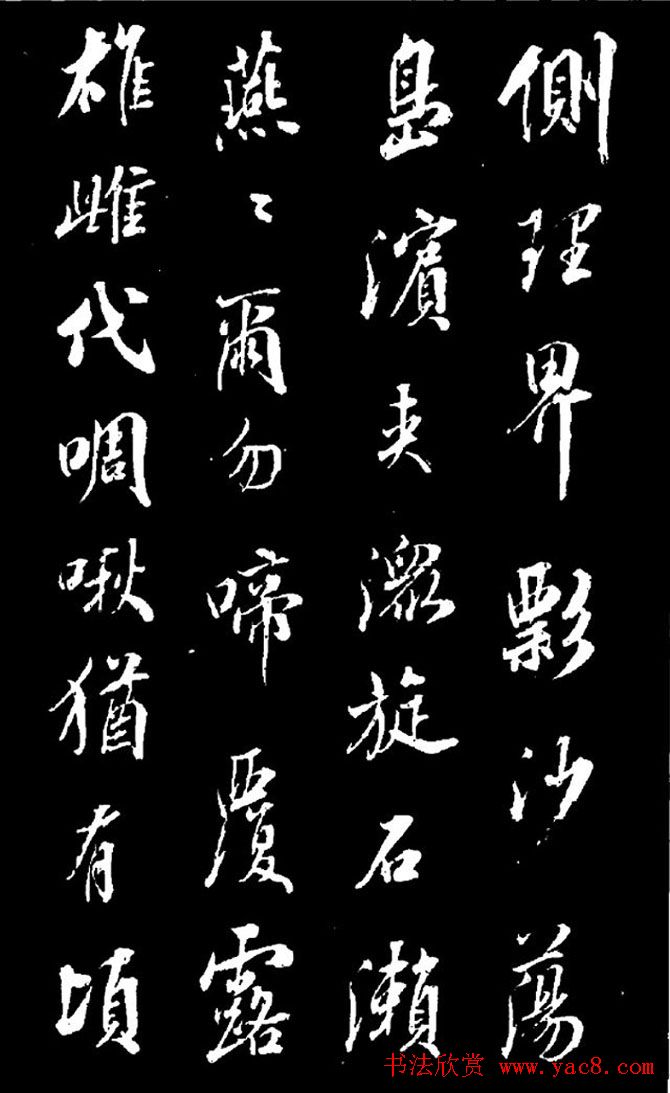 側理界彯沙蕩
島濱夾潀旋石瀨
燕〻爾勿啼覆露
雄雌代啁啾猶有頃
书法欣赏 www.yac8.com